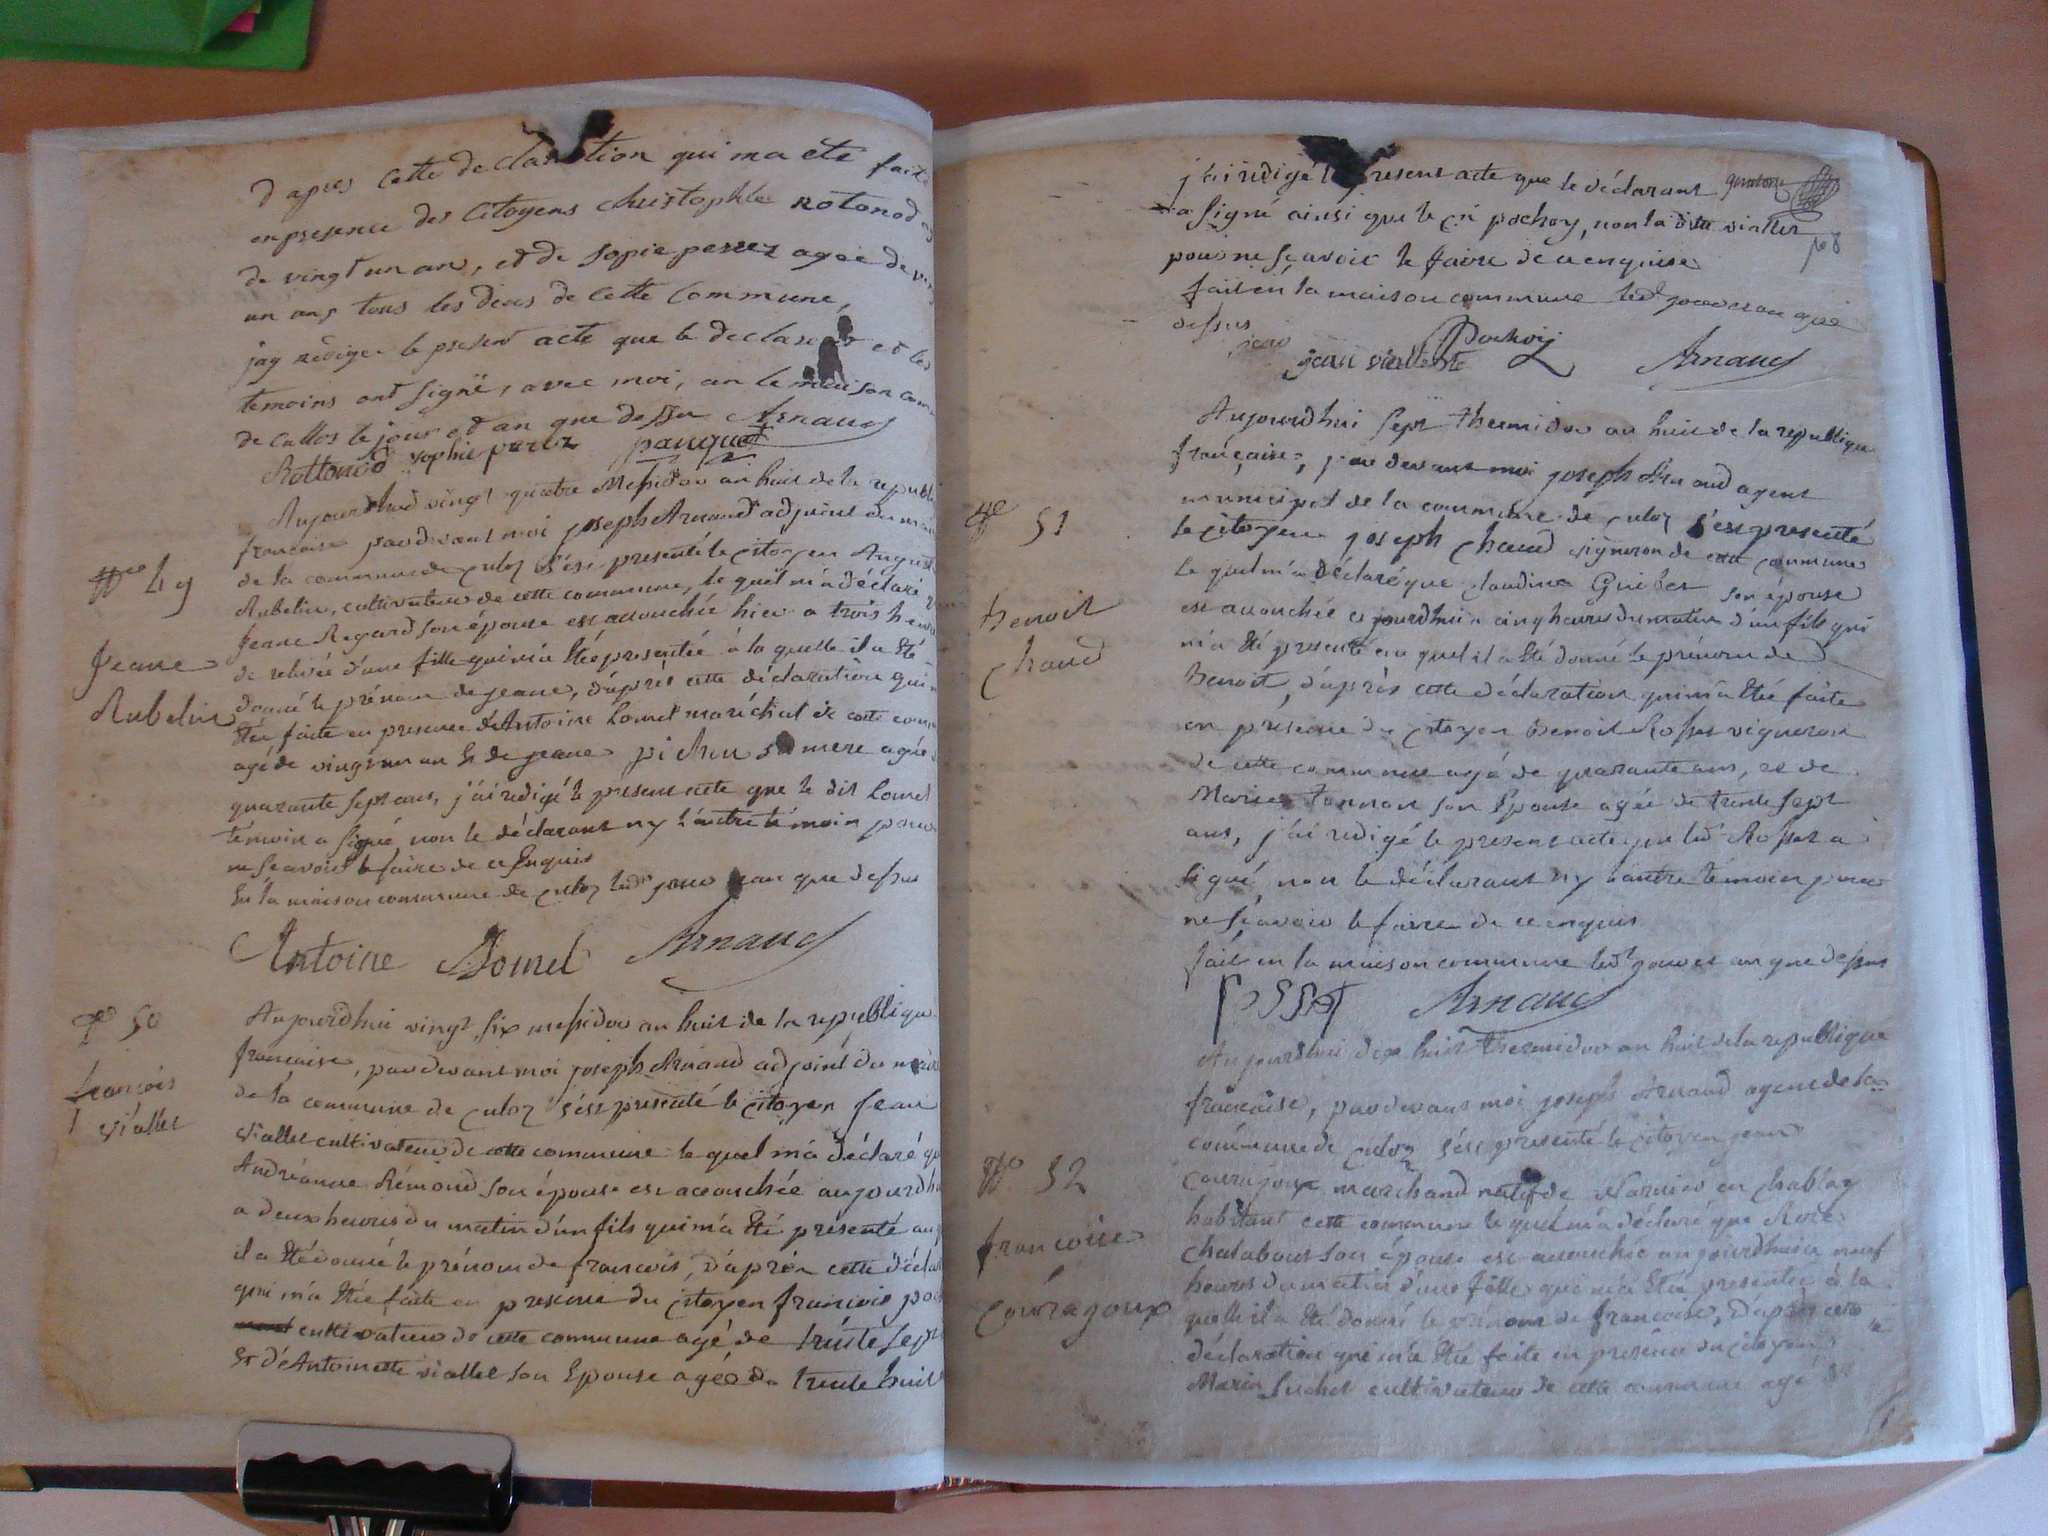 d'apres cette declaration qui ma ete faite
en presence des Citoyens christophle rotonod
de vingt un an, et de sopie perrez agée de
un ans tous les deux de cette Commune,
jay rediger le present acte que le declarant et les
temoins ont signé, avec moi, an le maison com
de Culloz le jour et an que dessu Arnaud
Rottonod sophie perrez pauquet
Aujourd'hui vingt quatre Messidor an huit de la republi
francaise pardevant moi joseph Arnaud adjoint du mai
de la commune de Culoz s'est presenté le citoyen August
Rubelin, cultivateur de cette commune, le quel m'a déclaré
N° 49
jeanne Regard son épouse est accouchée hier a trois heur
de relevée d'une fille qui m'a été présentée à la quelle il a été
Jeanne
donné le prénom de jeanne, d'après cette déclaration qui
Rubelin
été faite en presence d'Antoine Lomel maréchal de cette com
agé de vingt un an Et de jeanne pichu sa mere agée
quarante sept ans, j'ai redigé le present acte que le dit Lomel
témoin a signé non le déclarant ny l'autre témoin pour
ne sçavoir le faire de ce Enquis
En la maison commune de Culoz led jour et an que dessus
Antoine Lomel Arnaud
N° 50
Aujourdhui vingt six messidor an huit de la republique
francaise, pardevant moi joseph Arnaud adjoint du maire
françois
viallet
de la commune de Culoz s'est presenté le citoyen Jean
viallet cultivateur de cette commune le quel m'a déclaré q
Andréanne Rémond son épouse est accouchée aujourdh
a deux heures du matin d'un fils qui m'a été présenté au
il a été donné le prénom de francois, d'après cette décla
qui m'a été faite en présence du citoyen francois po
cultivateur de cette commune agé de trente sept
Et d'Antoinette viallet son Epouse agée de trente huit
j'ai redigé le present acte que le déclarant
a signé ainsi que le cn pochoy, non la dite viallet
pour ne sçavoir le faire de ce enquise
fait en la maison commune led jour et an que
dessus
jean viallet Pochoy Arnaud
Aujourdhui sept thermidor an huit de la republique
française, par devant moi joseph Arnaud agent
municipal de la commune de Culoz s'est presenté
N° 51
le citoyen joseph Chaud vigneron de cette commune
le quel m'a déclaré que claudine Guibet son épouse
est accouchée ce jourdhui a cinq heures du matin d'un fils qui
benoit
m'a été presenté au quel il a été donné le prénom de
Chaud
Benoit, d'après cette déclaration qui m'a été faite
en presence du citoyen Benoit Rosset vigneron
de cette commune agé de quarante ans, et de
Marie son Epouse agée de trente sept
ans, j'ai redigé le present acte que led Rosset a
signé, non le déclarant ny l'autre témoin pour
ne sçavoir le faire de ce enquis
fait en la maison commune led jour et an que dessus
rosset Arnaud
Aujourdhui dix huit thermidor an huit de la republique
francaise, pardevant moi joseph Arnaud agent de la
commune de Culoz s'est presenté le citoyen jean
N° 52
Courajoux marchand natif de en chablay
habitant cette commune le quel m'a déclaré que
francoise
son épouse est accouchée aujourdhui a neuf
heures du matin d'une fille qui m'a été presentée à la
Courajoux
quelle il a été donné le prenom de francoise, d'après cette
déclaration qui m'a été faite en presence du citoyen
Marin cultivateur de cette commune agé